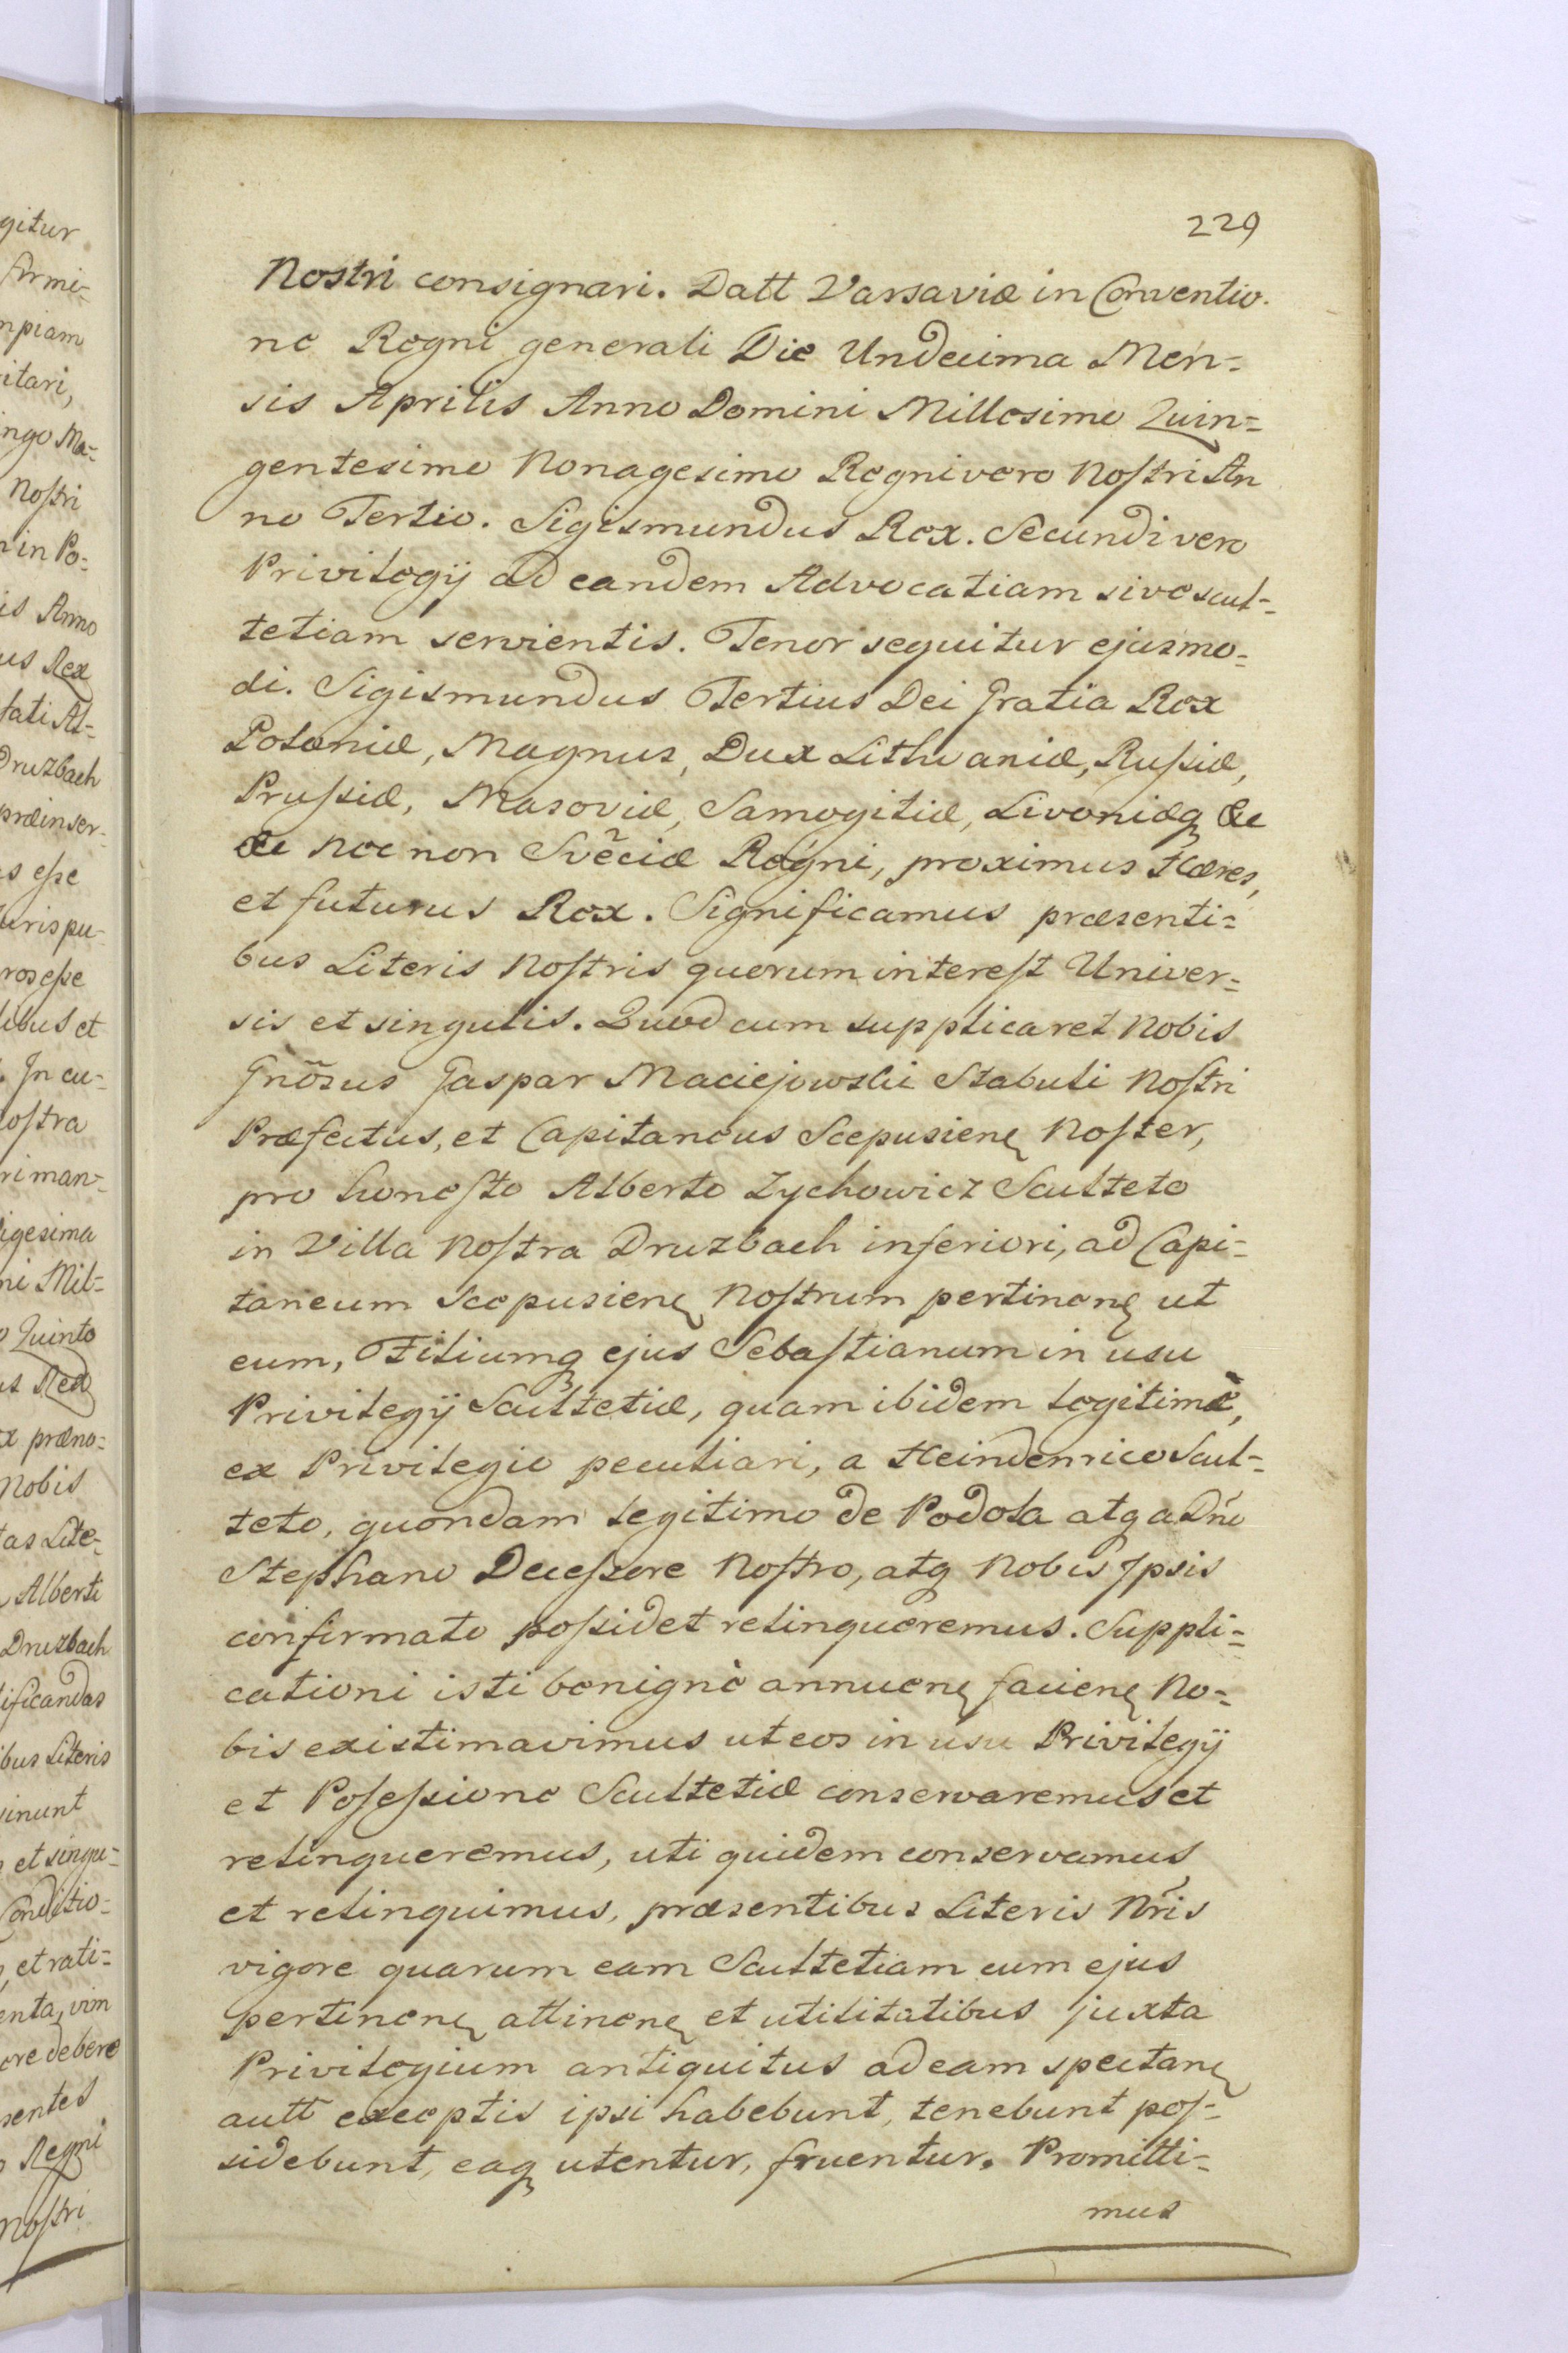 gitur
firmi=
mpiam
itari,
ingo Ma=
Noſtri
in Po=
is Anno
us Rex
tati Al=
Druzbach
præinser=
s eſse
Juris pu=
ros eſse
libus et
. In cu=
noſtra
ri man=
igesima
ni Mil=
o Quinto
us Rex
x præno=
Nobis
tas Lite=
Alberti
Druzbach
ificandas
ibus Literis
inunt
et singu=
Conditio=
et rati=
enta, vim
ore debere
sentes
Regni
Noſtri
229
Nostri consignari. Datt Varsaviæ in Conventio.
ne Regni generali Die Undecima Men=
sis Aprilis Anno Domini Millesimo Quin=
gentesimo Nonagesimo Regni vero Noſtri An
no Tertio. Sigismundus Rex. Secundi vero
Privilegij ad eandem Advocatiam sive scul=
tetiam servientis. Tenor sequitur ejusmo=
di. Sigismundus Tertius Dei Gratia Rex
Poloniæ, Magnus, Dux Lithvaniæ, Ruſsiæ,
Pruſsiæ, Masoviæ, Samogitiæ, Livoniæq &c
&c Nec non Svẽciæ Regni, proximus Hæres,
et futurus Rex. Significamus præsenti=
bus Literis Noſtris quorum intereſt Univer=
sis et singulis. Quod cum supplicaret Nobis
Gnõsus Gaspar Maciejowski Stabuli Noſtri
Præfectus, et Capitaneus Scepusienę Noſter,
pro honeſto Alberto Zychowicz Sculteto
in Villa Noſtra Druzbach inferiori, ad Capi=
taneum Scepusienę Noſtrum pertinenę ut
eum, Filiumq ejus Sebaſtianum in usu
Privilegij Scultetiæ, quam ibidem legitimè,
ex Privilegio peculiari, a Heindenrico Scul=
teto, quondam legitimo de Podola atq a Dńo
Stephano Deceſsore Noſtro, atq Nobis Ipsis
confirmato poſsidet relinqueremus. Suppli=
cationi isti benignè annuenę facienę No=
bis existimavimus ut eos in usu Privilegij
et Poſeſsione Scultetiæ conservaremus et
relinqueremus, uti quidem conservamus
et relinquimus, præsentibus Literis Nr̃is
vigore quarum eam Scultetiam cum ejus
pertinenę attinenę et utilitatibus juxta
Privilegium antiquitus ad eam spectanę
autt exceptis ipsi habebunt, tenebunt poſ=
sidebunt, eaq utentur, fruentur. Promitti=
mus